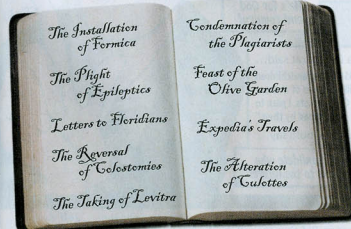 The Installation
of Formica
The Plight
of Epileptics
Letters to Floridians
The Reversal
of Colostomies
The Taking of Levitra
Condemnation of
the Plagiarists
Feast of the
Olive Garden
Expedia's Travels
The Alteration
of Culottes